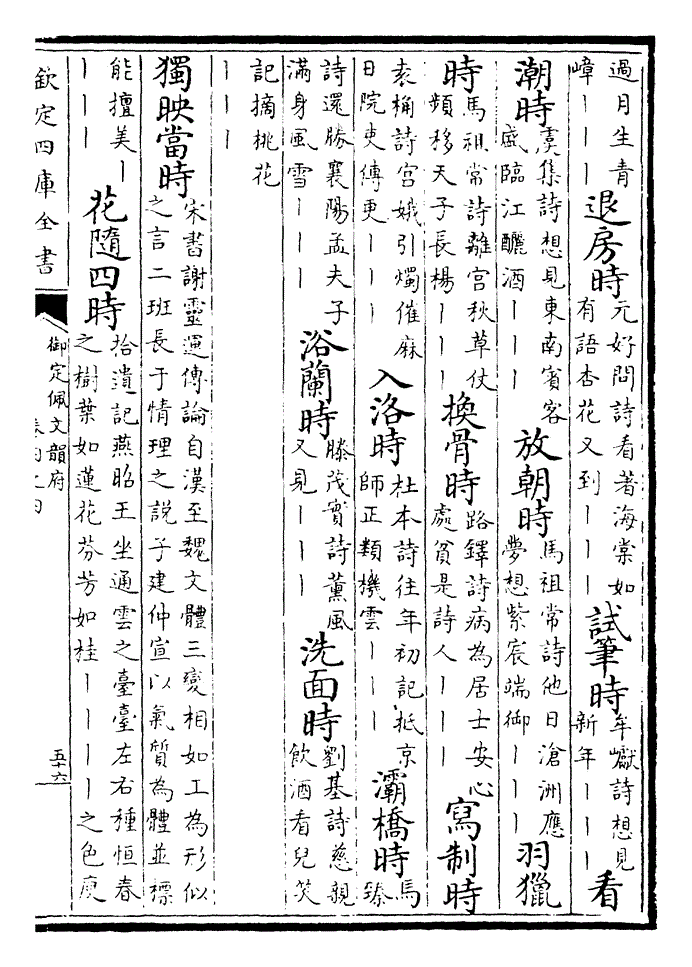 過月生青
嶂丨丨丨
退房時
元好問詩看著海棠如
有語杏花又到丨丨丨
試筆時
牟巘詩想見
新年丨丨丨
看
潮時
虞集詩想見東南賓客
盛臨江釃酒丨丨丨
放朝時
馬祖常詩他日滄洲應
夢想紫宸端御丨丨丨
羽獵
時
馬祖常詩離宮秋草仗
頻移天子長楊丨丨丨
換骨時
路鐸詩病為居士安心
處貧是詩人丨丨丨
寫制時
袁桷詩宮娥引燭催麻
日院吏傳更丨丨丨
入洛時
杜本詩往年初記抵京
師正類機雲丨丨丨
灞橋時
馬
臻
詩還勝襄陽孟夫子
滿身風雪丨丨丨
浴蘭時
滕茂實詩薰風
又見丨丨丨
洗面時
劉基詩慈親
飲酒看兒笑
記摘桃花
丨丨丨
獨映當時
宋書謝靈運傳論自漢至魏文體三變相如工為形似
之言二班長于情理之說子建仲宣以氣質為體並標
能擅美丨
丨丨丨
花隨四時
拾遺記燕昭王坐通雲之臺臺左右種恒春
之樹葉如蓮花芬芳如桂丨丨丨丨之色庾
欽定四庫全書
御定佩文韻府
五十六